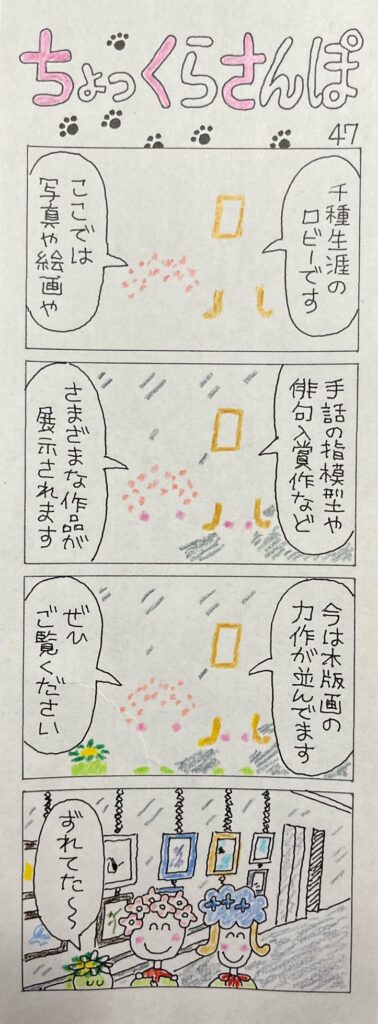 ちょっくらさんぽ
47
千種生涯の
ロビーです
ここでは
写真や絵画や
手話の指模型や
俳句入賞作など
さまざまな作品が
展示されます
今は木版画の
力作が並んでます
ぜひ
ご覧ください
ずれてた〜〜